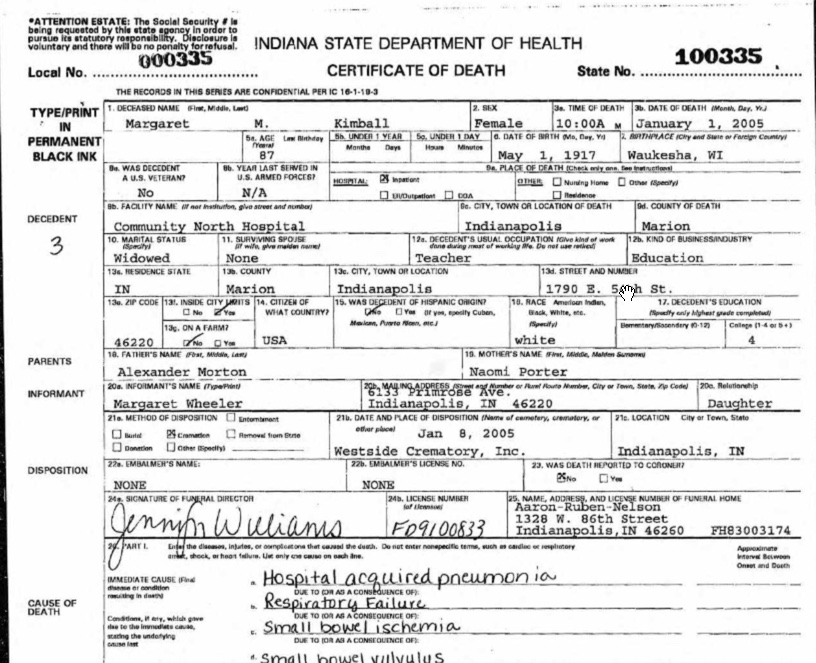 *ATTENTION ESTATE: The Social Security # is
being requested by this state agency in order to
pursue its statutory responsibility. Disclosure is
voluntary and there will be no penalty for refusal.
INDIANA STATE DEPARTMENT OF HEALTH
Local No. 000335
CERTIFICATE OF DEATH
State No. 100335
THE RECORDS IN THIS SERIES ARE CONFIDENTIAL PER IC 16-1-19-3
TYPE/PRINT
IN
PERMANENT
BLACK INK
1. DECEASED NAME (First, Middle, Last)
Margaret M. Kimball
2. SEX
Female
3a. TIME OF DEATH
10:00A M
3b. DATE OF DEATH (Month, Day, Yr.)
January 1, 2005
5a. AGE Last Birthday
(Years)
87
5b. UNDER 1 YEAR
Months Days
5c. UNDER 1 DAY
Hours Minutes
6. DATE OF BIRTH (Mo, Day, Yr)
May 1, 1917
7. BIRTHPLACE (City and State or Foreign Country)
Waukesha, WI
8a. WAS DECEDENT
A U.S. VETERAN?
No
8b. YEAR LAST SERVED IN
U.S. ARMED FORCES?
N/A
9a. PLACE OF DEATH (Check only one. See instructions)
HOSPITAL: Inpatient
ER/Outpatient DOA
OTHER: Nursing Home Other (Specify)
Residence
DECEDENT
3
9b. FACILITY NAME (If not institution, give street and number)
Community North Hospital
9c. CITY, TOWN OR LOCATION OF DEATH
Indianapolis
9d. COUNTY OF DEATH
Marion
10. MARITAL STATUS
(Specify)
Widowed
11. SURVIVING SPOUSE
(If wife, give maiden name)
None
12a. DECEDENT'S USUAL OCCUPATION (Give kind of work
done during most of working life. Do not use retired)
Teacher
12b. KIND OF BUSINESS/INDUSTRY
Education
13a. RESIDENCE STATE
IN
13b. COUNTY
Marion
13c. CITY, TOWN OR LOCATION
Indianapolis
13d. STREET AND NUMBER
1790 E. St.
13e. ZIP CODE
46220
13f. INSIDE CITY LIMITS
No Yes
13g. ON A FARM?
No Yes
14. CITIZEN OF
WHAT COUNTRY?
USA
15. WAS DECEDENT OF HISPANIC ORIGIN?
No Yes (If yes, specify Cuban,
Mexican, Puerto Rican, etc.)
16. RACE American Indian,
Black, White, etc.
(Specify)
white
17. DECEDENT'S EDUCATION
(Specify only highest grade completed)
Elementary/Secondary (0-12) College (1-4 or 5+)
4
PARENTS
18. FATHER'S NAME (First, Middle, Last)
Alexander Morton
19. MOTHER'S NAME (First, Middle, Maiden Surname)
Naomi Porter
INFORMANT
20a. INFORMANT'S NAME (Type/Print)
Margaret Wheeler
20b. MAILING ADDRESS (Street and Number or Rural Route Number, City or Town, State, Zip Code)
6133 Primrose Ave.
Indianapolis, IN 46220
20c. Relationship
Daughter
21a. METHOD OF DISPOSITION Entombment
Burial Cremation Removal from State
Donation Other (Specify)
21b. DATE AND PLACE OF DISPOSITION (Name of cemetery, crematory, or
other place)
Jan 8, 2005
Westside Crematory, Inc.
21c. LOCATION City or Town, State
Indianapolis, IN
DISPOSITION
22a. EMBALMER'S NAME:
NONE
22b. EMBALMER'S LICENSE NO.
NONE
23. WAS DEATH REPORTED TO CORONER?
No Yes
24a. SIGNATURE OF FUNERAL DIRECTOR
Jennifer Williams
24b. LICENSE NUMBER
(of Licensee)
FD9100833
25. NAME, ADDRESS, AND LICENSE NUMBER OF FUNERAL HOME
Aaron-Ruben-Nelson
1328 W. 86th Street
Indianapolis, IN 46260 FH83003174
26. PART I. Enter the diseases, injuries, or complications that caused the death. Do not enter nonspecific terms, such as cardiac or respiratory
arrest, shock, or heart failure. List only one cause on each line.
Approximate
Interval Between
Onset and Death
CAUSE OF
DEATH
IMMEDIATE CAUSE (Final
disease or condition
resulting in death)
a. Hospital acquired pneumonia
DUE TO (OR AS A CONSEQUENCE OF):
b. Respiratory Failure
DUE TO (OR AS A CONSEQUENCE OF):
Conditions, if any, which gave
rise to the immediate cause,
stating the underlying
cause last
c. Small bowel ischemia
DUE TO (OR AS A CONSEQUENCE OF):
d. Small bowel vulvulus